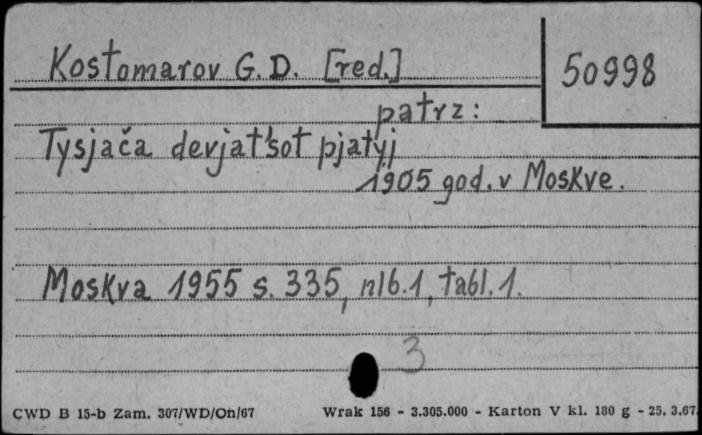 Kostomarov G. D. [red.]
50998
patrz:
Tysjača devjat'sot pjatyj
1905 god. v Moskve.
Moskva 1955 s. 335, nlb. 1, tabl. 1.
3
CWD B 15-b Zam. 307/WD/On/67 Wrak 156 - 3.305.000 - Karton V kl. 180 g - 25. 3.67.